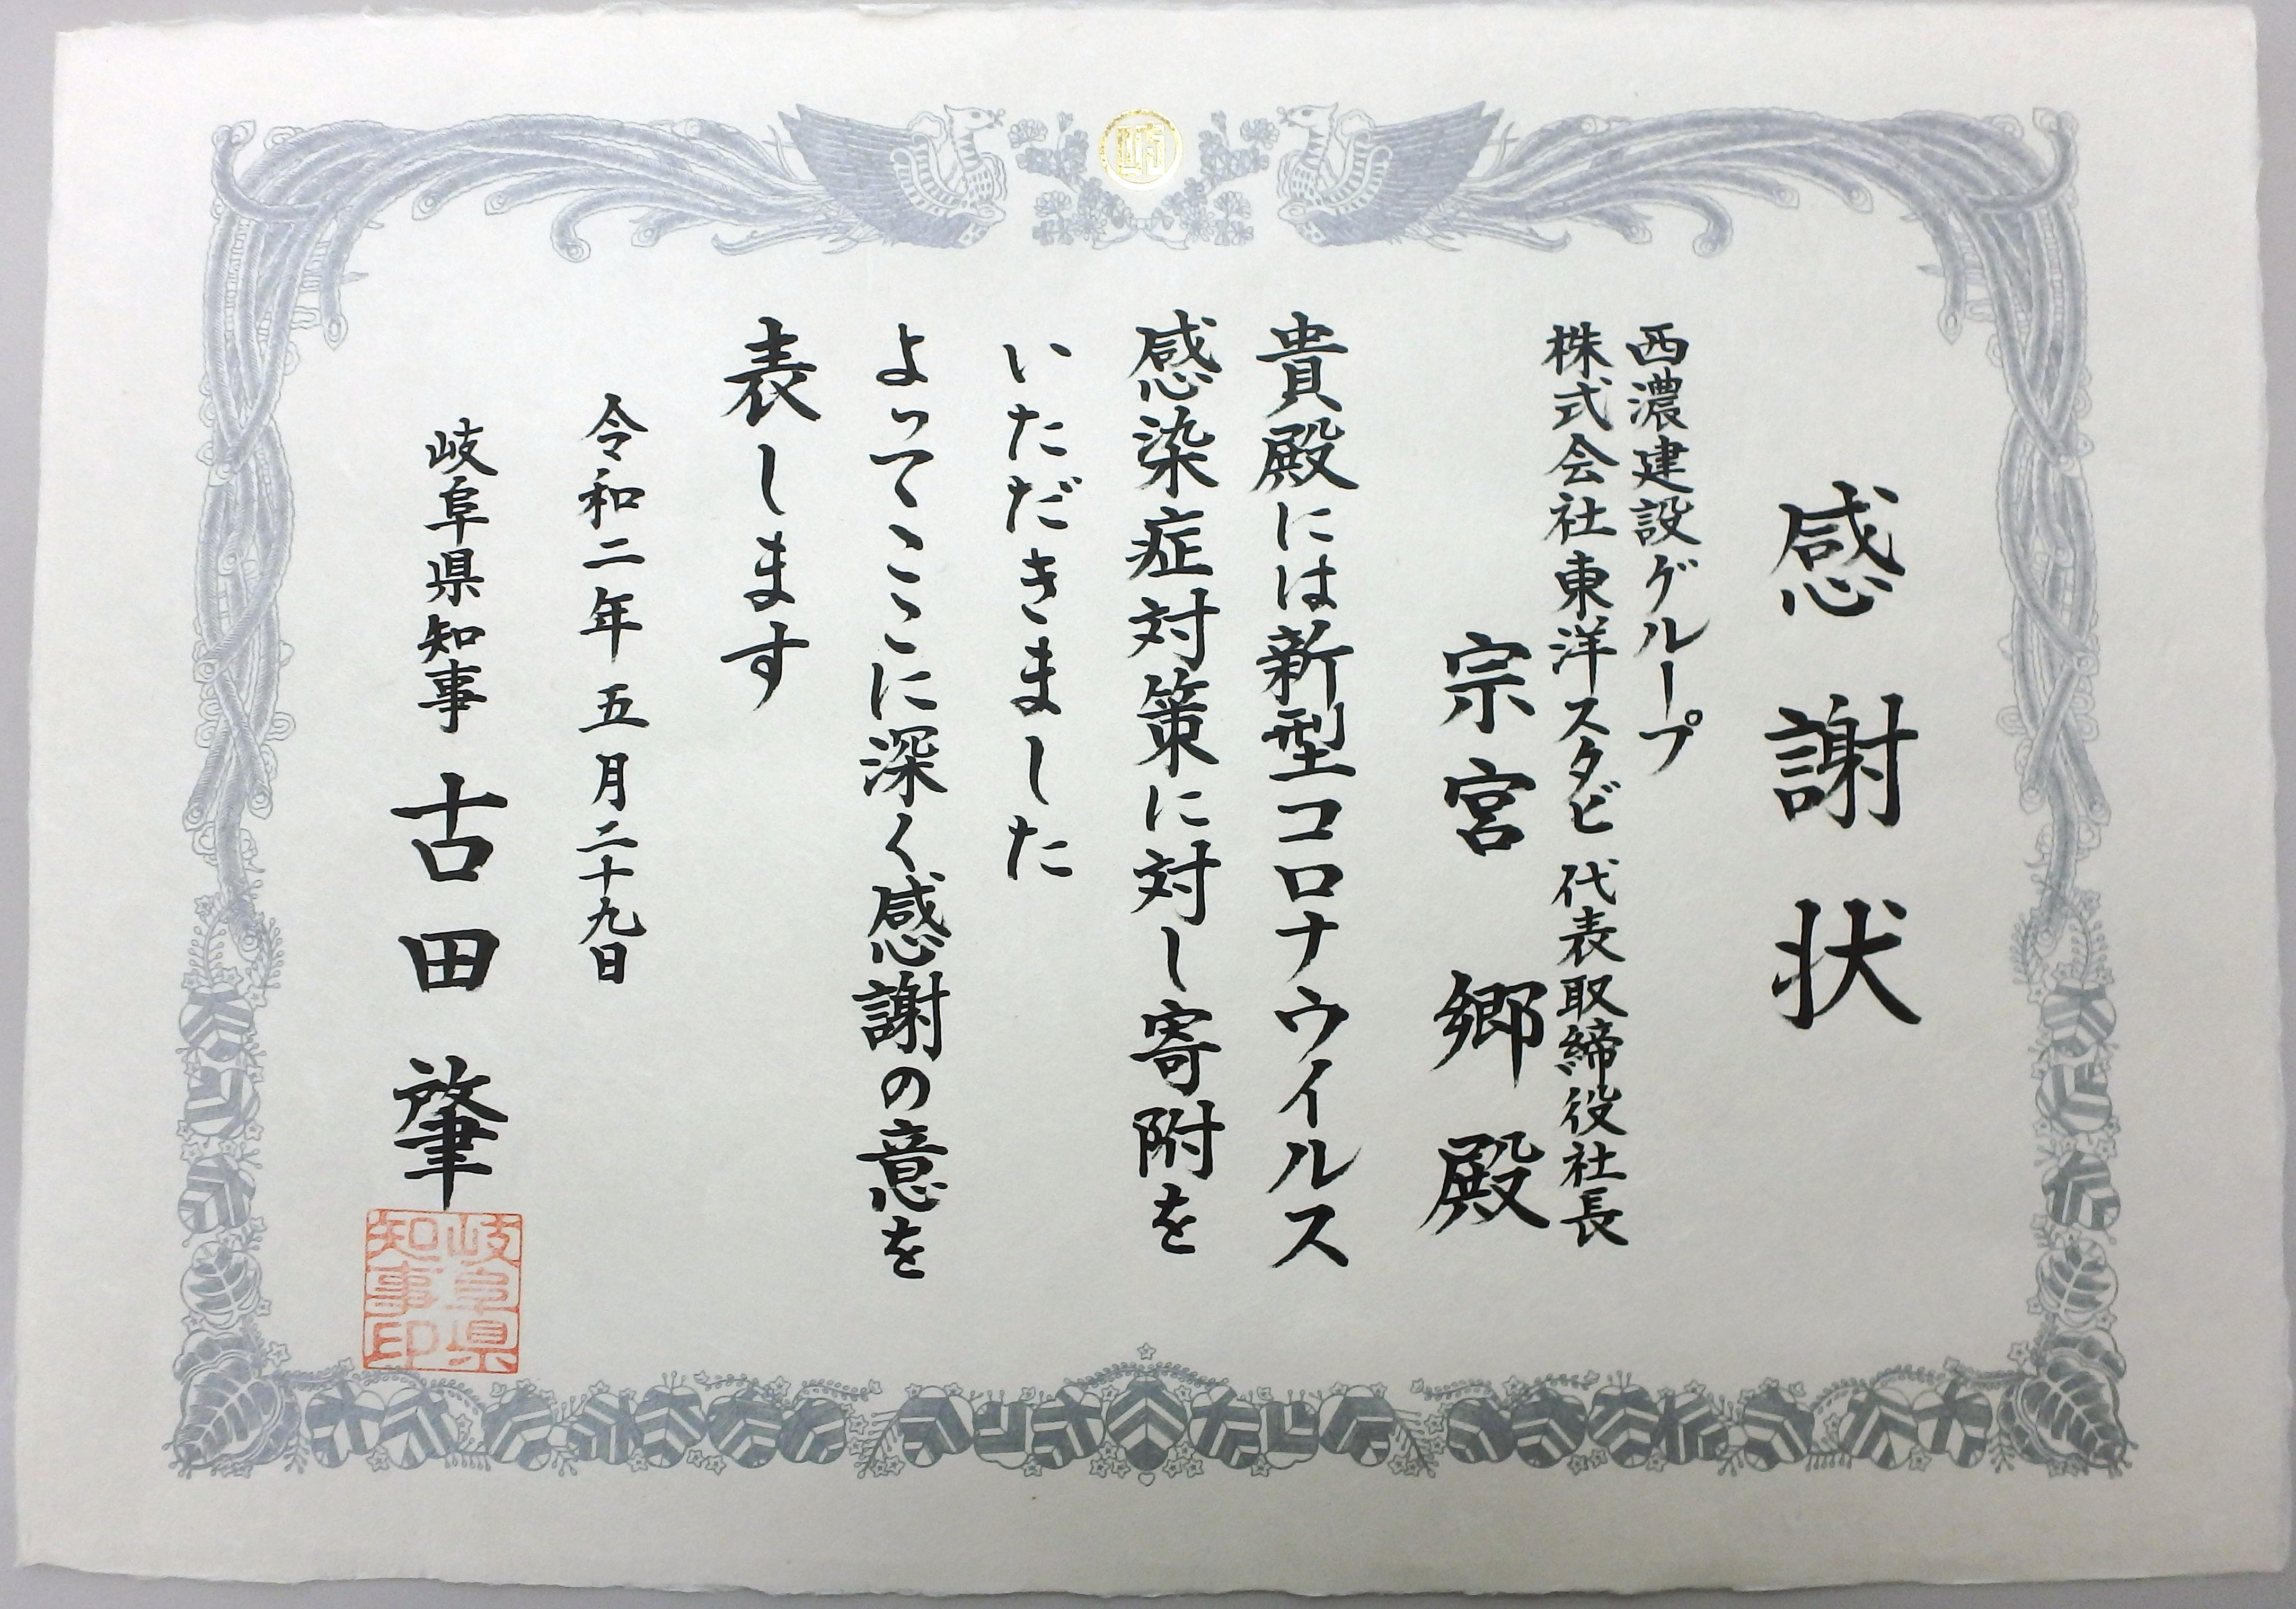 感謝状
西濃建設グループ
株式会社東洋スタビ 代表取締役社長
宗宮 郷 殿
貴殿には新型コロナウイルス
感染症対策に対し寄附を
いただきました
よってここに深く感謝の意を
表します
令和二年五月二十九日
岐阜県知事 古田肇
岐阜県
知事印